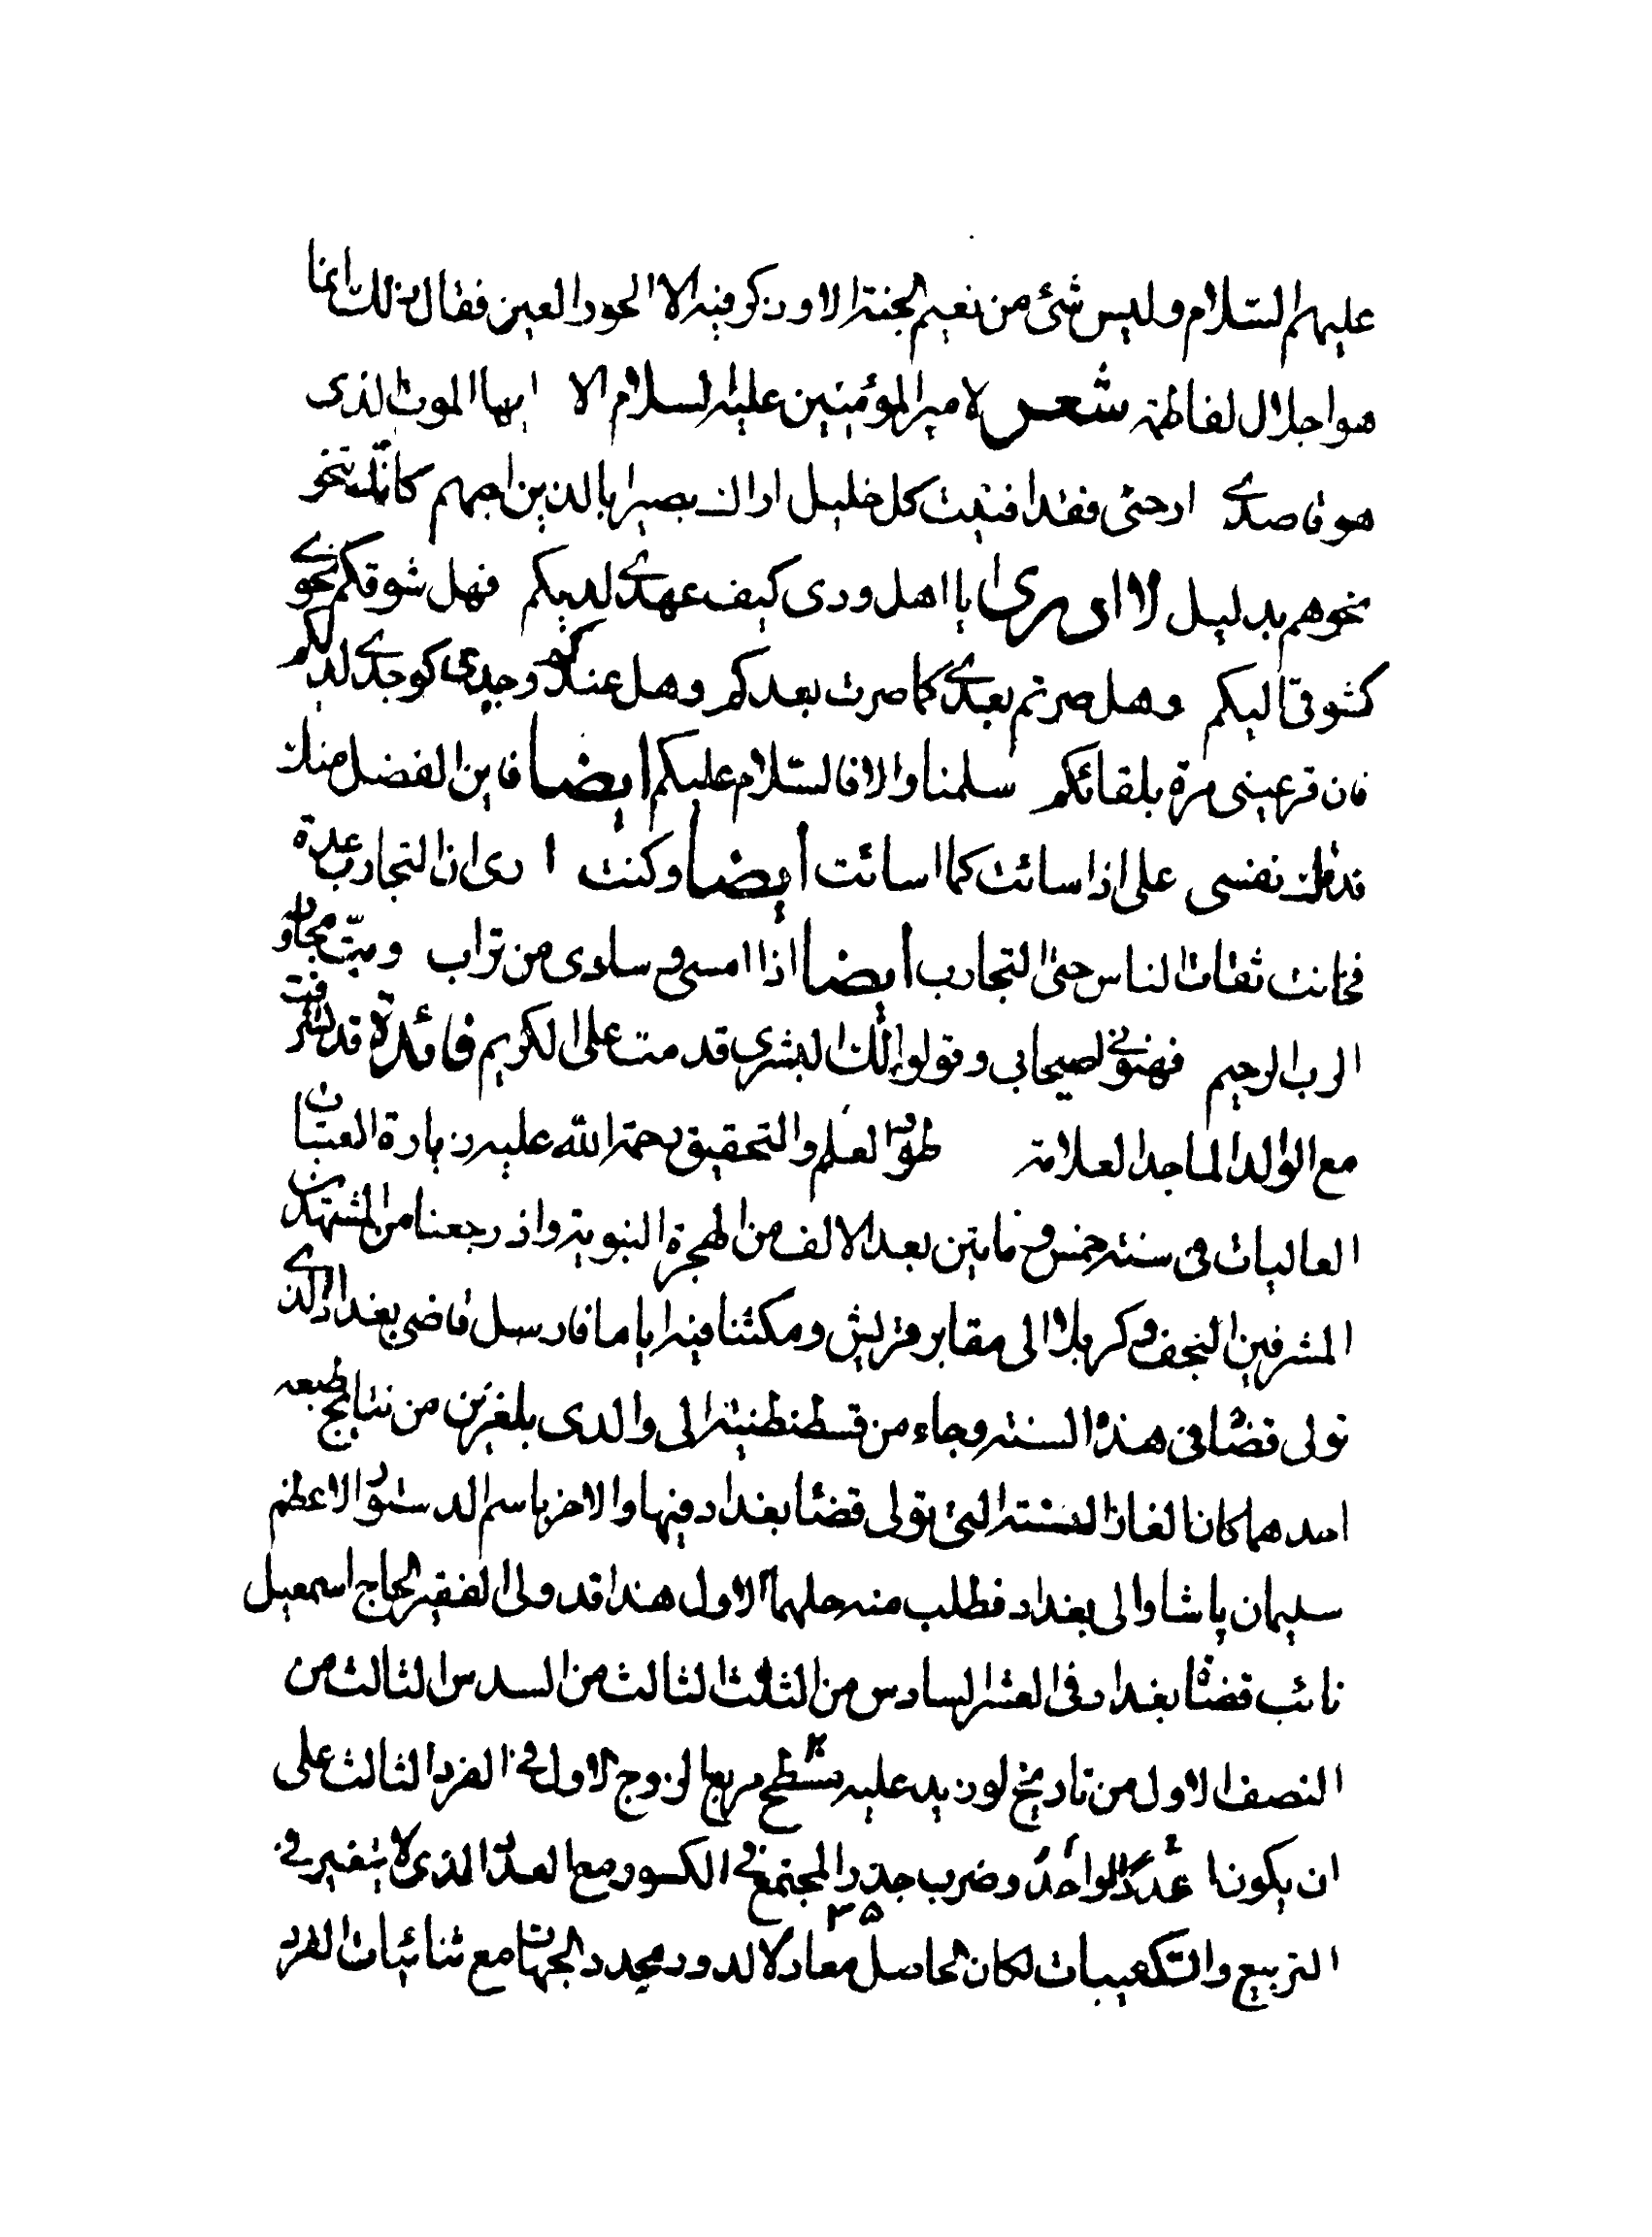 عليهم السّلام وليس شئ من نعيم الجنة الا وذكر فيه الا الحور العين فقال ذلك انما
هو اجلال لفاطمة شعر لامير المؤمنين عليه السلام الا ايها الموت الذى
هو قاصدي ارحنى فقد افنيت كل خليل اراك بصيرا بالذين احبهم كانّك تنحو
نحوهم بدليل لا ادرى يا اهل ودى كيف عهدي لديكم فهل شوقكم نحوي
كشوقى اليكم وهل صرتم بعدي كما صرت بعدكم وهل عندكم وجدى كوجدي لديكم
فان قر عينى مرة بلقائكم سلمنا والا فالسّلام عليكم ايضا فاين الفضل منك
فدتك نفسى على اذا سائت كما اسائت ايضا وكنت ارى ان التجارب عدة
فخانت ثقات الناس حتى التجارب ايضا اذا امسى وسادى من تراب وبتّ مجاور
الرب الرحيم فهنوني اصيحابى وقولوا لك البشرى قدمت على الكريم فائدة قد تشرفت
مع الوالد الماجد العلامة طور العلم والتحقيق رحمة الله عليه زيارة العتبات
العاليات فى سنة خمس ومايتين بعد الالف من الهجرة النبوية واذ رجعنا من المشهدين
المشرفين النجف وكربلا الى مقابر قريش ومكثنا فيه اياما فارسل قاضى بغداد الذي
تولى قضائها فى هذه السنة وجاء من قسطنطنية الى والدى بلغزين من نتايج طبعه
احدهما كان الغاز السنة التى تولى قضاء بغداد فيها والاخر باسم الدستور الاعظم
سليمان پاشا والى بغداد فطلب منه حلهما الاول هذا قد ولى الفقير الحاج اسمعيل
نائب قضاء بغداد فى العشر السادس من الثلث الثالث من السدس الثالث من
النصف الاول من تاريخ لو زيد عليه مسطح مربع الزوج الاول فى الفرد الثالث على
ان يكون عدد الواحد وضرب جذر المجتمع فى الكسور مع العدد الذى لا يتغير فى
التربيع والتكعيبات لكان الحاصل معادلا لدور محدد الجهات مع ثنائيات الفرد